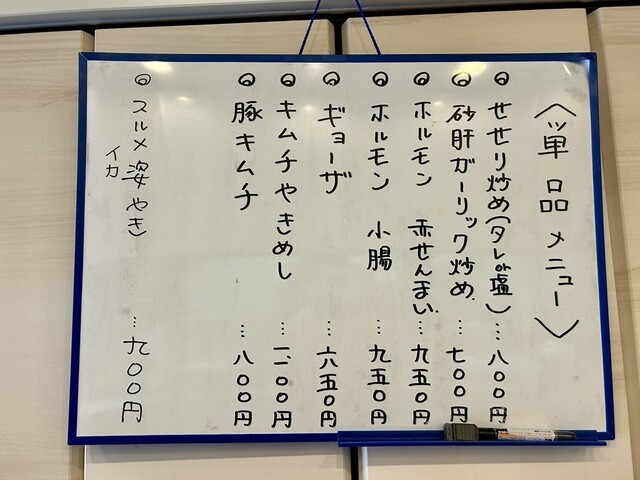 〈単品メニュー〉
◎せせり炒め(タレor塩)…八〇〇円
◎砂肝ガーリック炒め…七〇〇円
◎ホルモン 赤せんまい…九五〇円
◎ホルモン 小腸…九五〇円
◎ギョーザ…六五〇円
◎キムチやきめし…一、一〇〇円
◎豚キムチ…八〇〇円
◎スルメイカ姿やき…九〇〇円